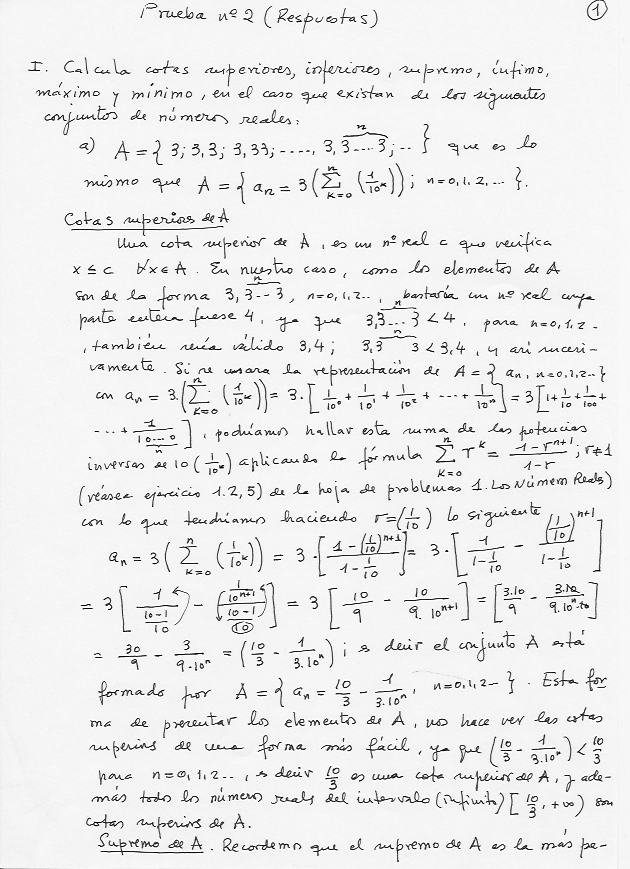 Prueba nº 2 (Respuestas)
1
I. Calcula cotas superiores, inferiores, supremo, ínfimo,
máximo y mínimo, en el caso que existan de los siguientes
conjuntos de números reales:
a) A = { 3; 3,3; 3,33; ...., 3,3...3 (n); .. } que es lo
mismo que A = { aₙ = 3 (∑_{k=0}^{n} (1/10^k)); n=0,1,2,... }.
Cotas superiores de A
Una cota superior de A, es un nº real c que verifica
x ≤ c ∀x∈A. En nuestro caso, como los elementos de A
son de la forma 3,3--3 (n), n=0,1,2.., bastaría un nº real cuya
parte entera fuese 4, ya que 3,3...3 (n) < 4, para n=0,1,2-
, también sería válido 3,4; 3,3 3 (n) < 3,4, y así sucesi-
vamente. Si se usara la representación de A = { aₙ, n=0,1,2..}
con aₙ = 3.(∑_{k=0}^{n} (1/10^k)) = 3.[1/10^0 + 1/10^1 + 1/10^2 + ... + 1/10^n] = 3[1 + 1/10 + 1/100 +
... + 1/10...0 (n)], podríamos hallar esta suma de las potencias
inversas de 10 (1/10^k) aplicando la fórmula ∑_{k=0}^{n} r^k = (1-r^{n+1})/(1-r); r≠1
(véasea ejercicio 1.2,5) de la hoja de problemas 1. Los Número Reales)
con lo que tendríamos haciendo r=(1/10) lo siguiente
aₙ = 3 (∑_{k=0}^{n} (1/10^k)) = 3.[(1-(1/10)^{n+1})/(1-1/10)] = 3.[1/(1-1/10) - (1/10)^{n+1}/(1-1/10)]
= 3 [1/((10-1)/10) - (1/10^{n+1})/((10-1)/10)] = 3 [10/9 - 10/(9.10^{n+1})] = [3.10/9 - 3.10/(9.10^n.10)]
= 30/9 - 3/(9.10^n) = (10/3 - 1/(3.10^n)); es decir el conjunto A está
formado por A = { aₙ = 10/3 - 1/(3.10^n), n=0,1,2-- }. Esta for
ma de presentar los elementos de A, nos hace ver las cotas
superiores de una forma más fácil, ya que (10/3 - 1/(3.10^n)) < 10/3
para n=0,1,2.., es decir 10/3 es una cota superior de A, y ade-
más todos los números reales del intervalo (infinito) [10/3, +∞) son
cotas superiores de A.
Supremo de A. Recordemos que el supremo de A es la más pe-